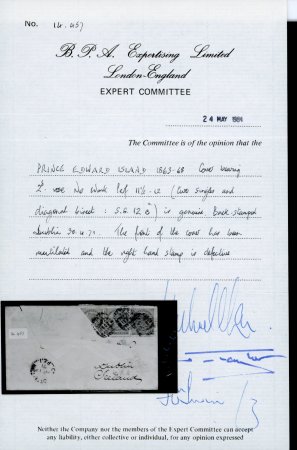 No. 14,457
B. P. A. Expertising Limited
London-England
EXPERT COMMITTEE
24 MAY 1984
The Committee is of the opinion that the
PRINCE EDWARD ISLAND 1863-68 Cover bearing
2d. rose No Wmk Perf 11½-12 (two singles and
diagonal bisect: S.G. 12) is genuine Back stamped
Dublin 30.4.71. The front of the cover has been
mutilated and the right hand stamp is defective
14,457
Dublin
Ireland
Neither the Company nor the members of the Expert Committee can accept
any liability, either collective or individual, for any opinion expressed